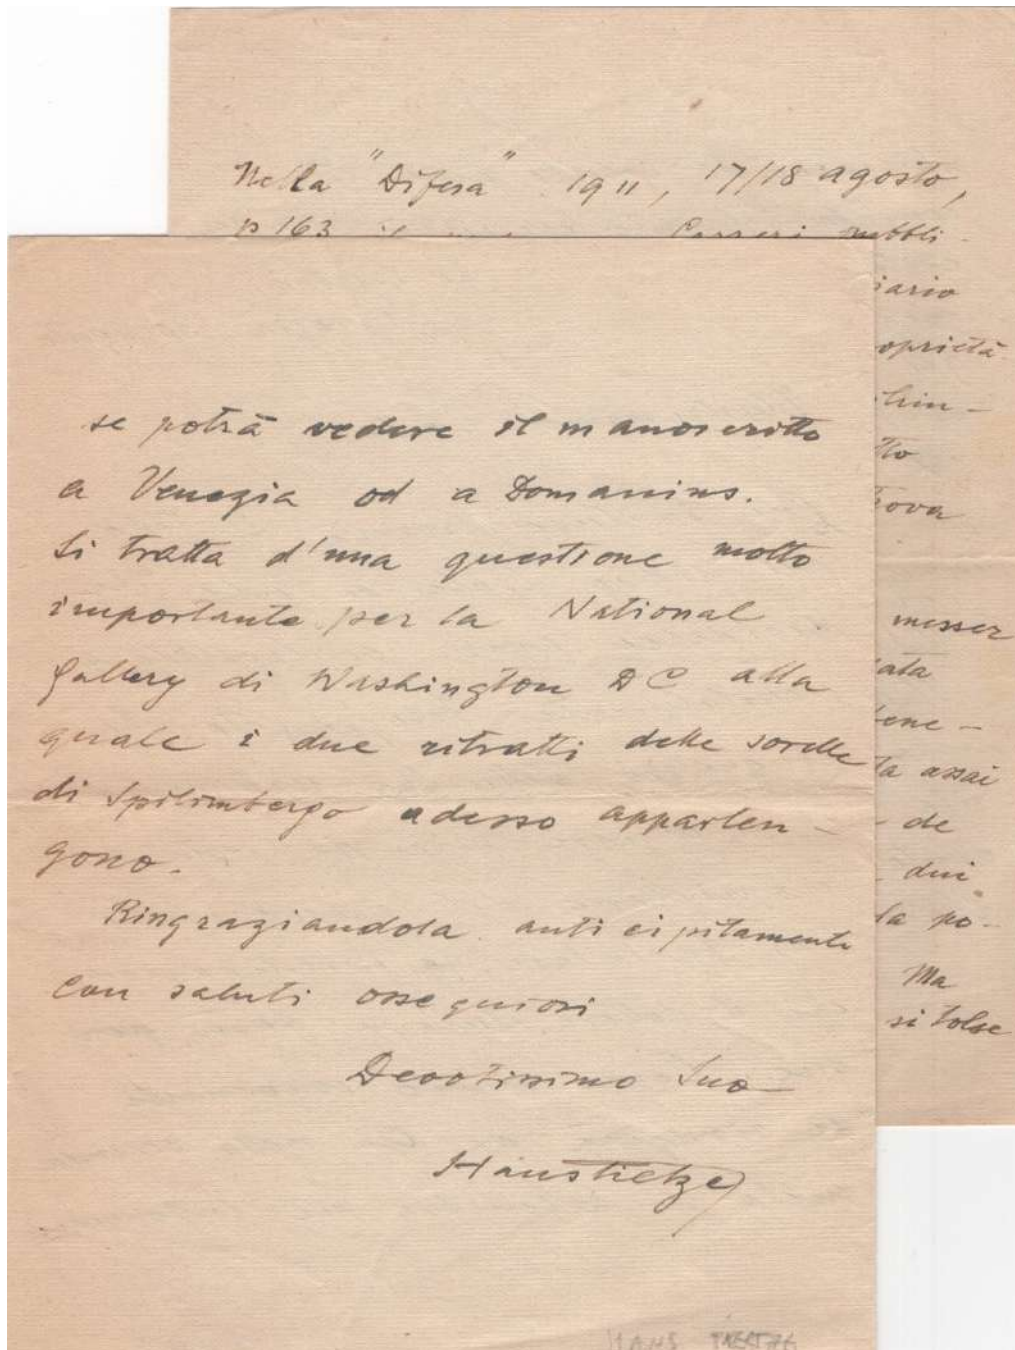 Nella "Difesa" 1911, 17/18 agosto,
p 163 il Carreri pubbli-
iario
oprietà
chin-
tto
rova
messer
ata
bene-
ta assai
- de
- dui
la po-
Ma
si tolse
se potrà vedere il manoscritto
a Venezia od a Domanins.
Si tratta d'una questione molto
importante per la National
Gallery di Washington DC alla
quale i due ritratti delle sorelle
di Spilimbergo adesso apparten-
gono.
Ringraziandola anticipitamente
con saluti ossequiosi
Devotissimo Suo
Hans Tietze
HANS TIETZE